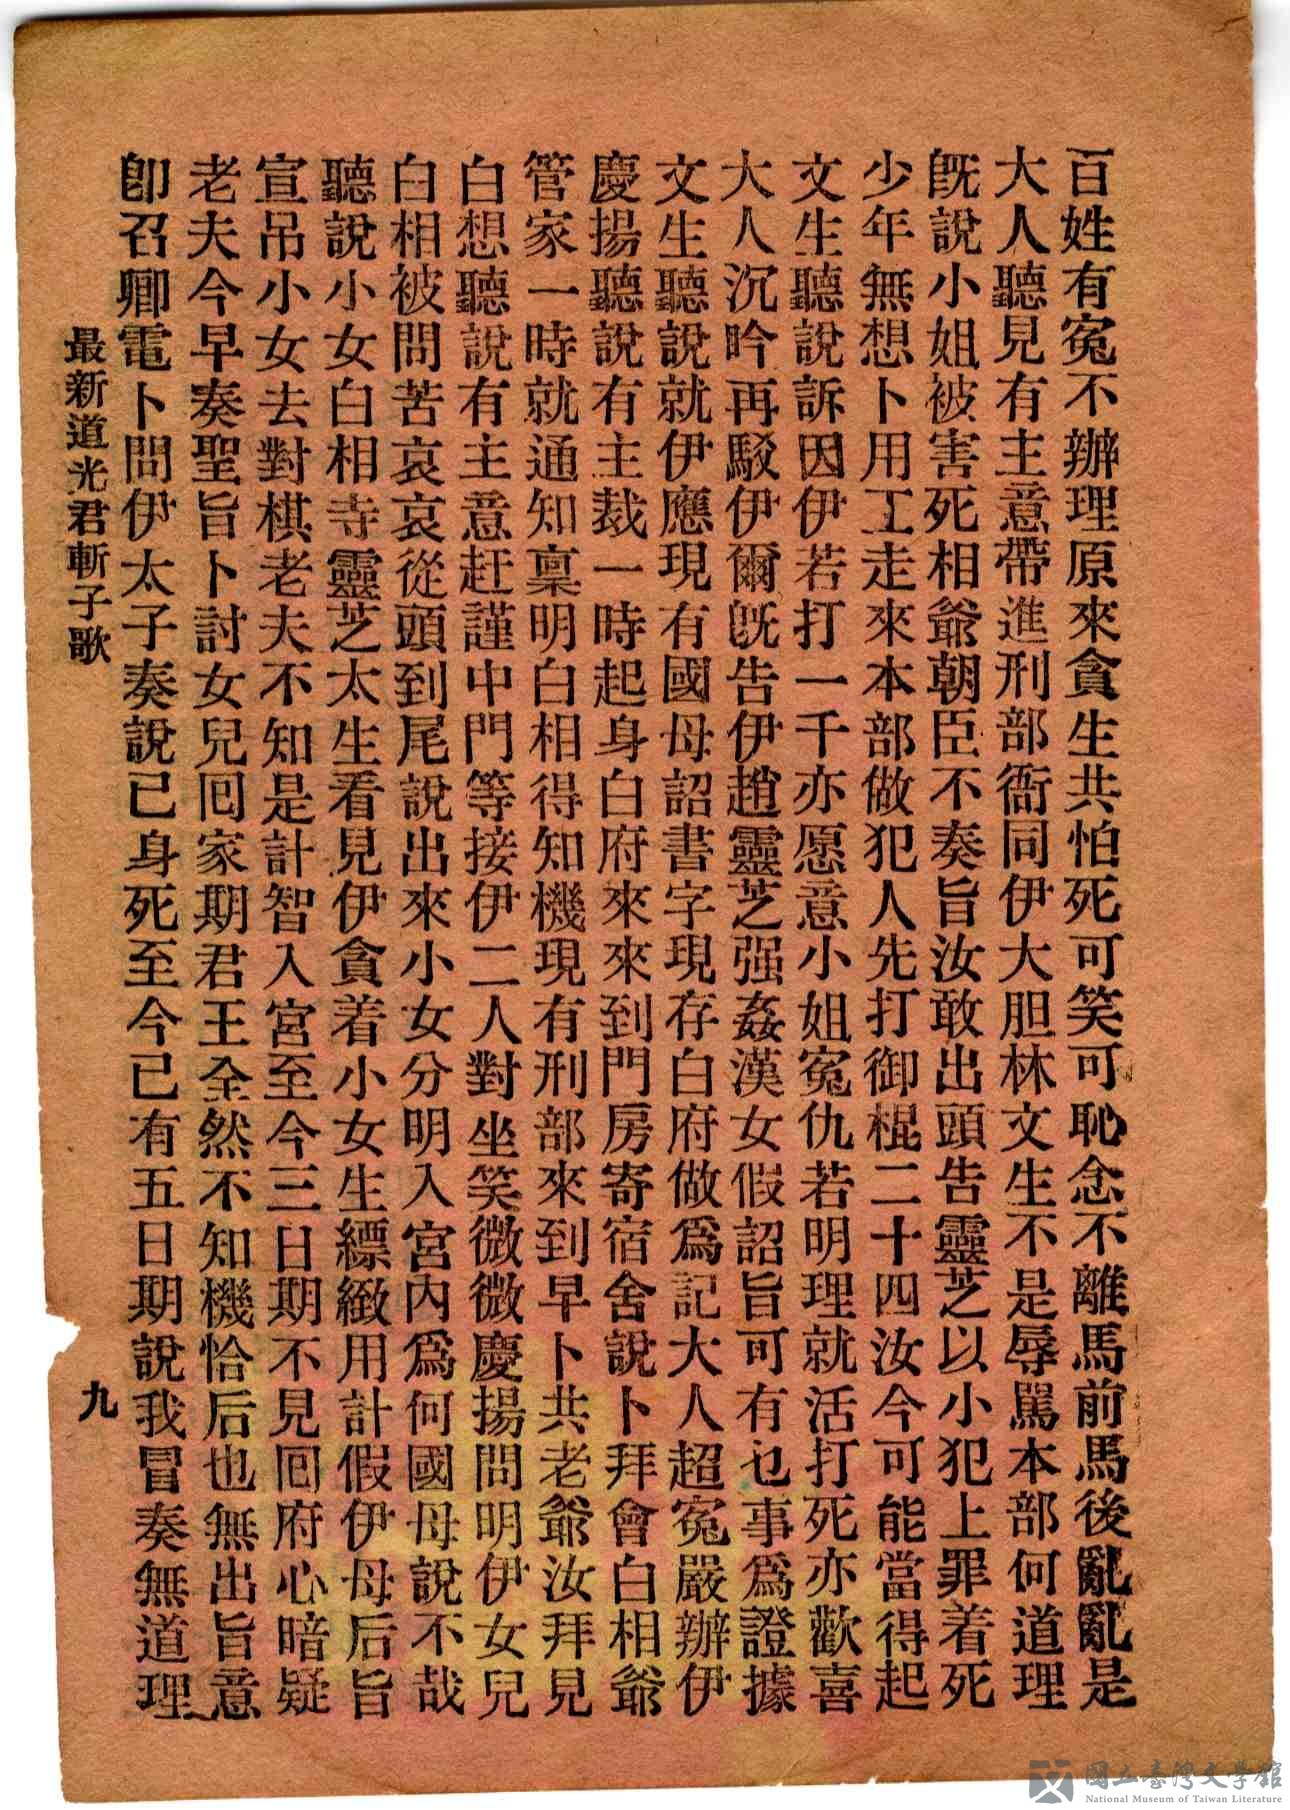 百姓有冤不辦理原來貪生共怕死可笑可恥念不離馬前馬後亂亂是
大人聽見有主意帶進刑部衙同伊大胆林文生不是辱罵本部何道理
旣說小姐被害死相爺朝臣不奏旨汝敢出頭告靈芝以小犯上罪着死
少年無想卜用工走來本部做犯人先打御棍二十四汝今可能當得起
文生聽說訴因伊若打一千亦愿意小姐冤仇若明理就活打死亦歡喜
大人沉吟再駁伊爾旣告伊趙靈芝强姦漢女假詔旨可有乜事為證據
文生聽說就伊應現有國母詔書字現存白府做爲記大人超冤嚴辦伊
慶揚聽說有主裁一時起身白府來來到門房寄宿舍說卜拜會白相爺
管家一時就通知稟明白相得知機現有刑部來到早卜共老爺汝拜見
白想聽說有主意赶謹中門等接伊二人對坐笑微微慶揚問明伊女兒
白相被問苦哀哀從頭到尾說出來小女分明入宮內爲何國母說不哉
聽說小女白相寺靈芝太生看見伊貪着小女生縹緻用計假伊母后旨
宣吊小女去對棋老夫不知是計智入宮至今三日期不見回府心暗疑
老夫今早奏聖旨卜討女兒回家期君王全然不知機恰后也無出旨意
卽召卿電卜問伊太子奏說已身死至今已有五日期說我冒奏無道理
最新道光君斬子歌
九
國立臺灣文學館
National Museum of Taiwan Literature